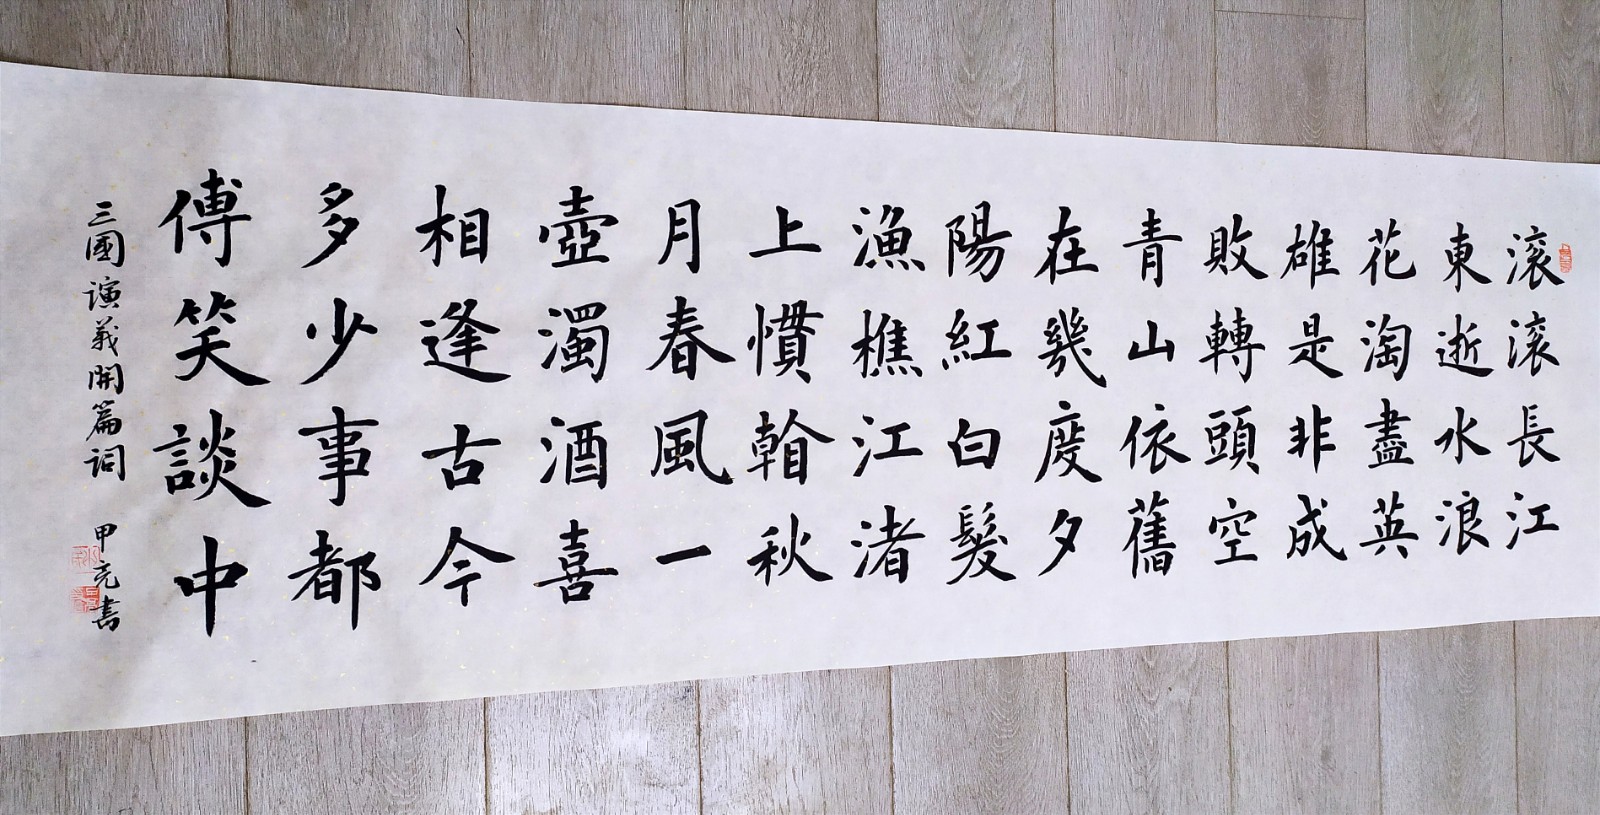 滚滚長江
東逝水浪
花淘盡英
雄是非成
敗轉頭空
青山依舊
在幾度夕
陽紅白髮
漁樵江渚
上慣秋
月春風一
壺濁酒喜
相逢古今
多少事都
傅笑談中
三國演義開篇詞 甲書